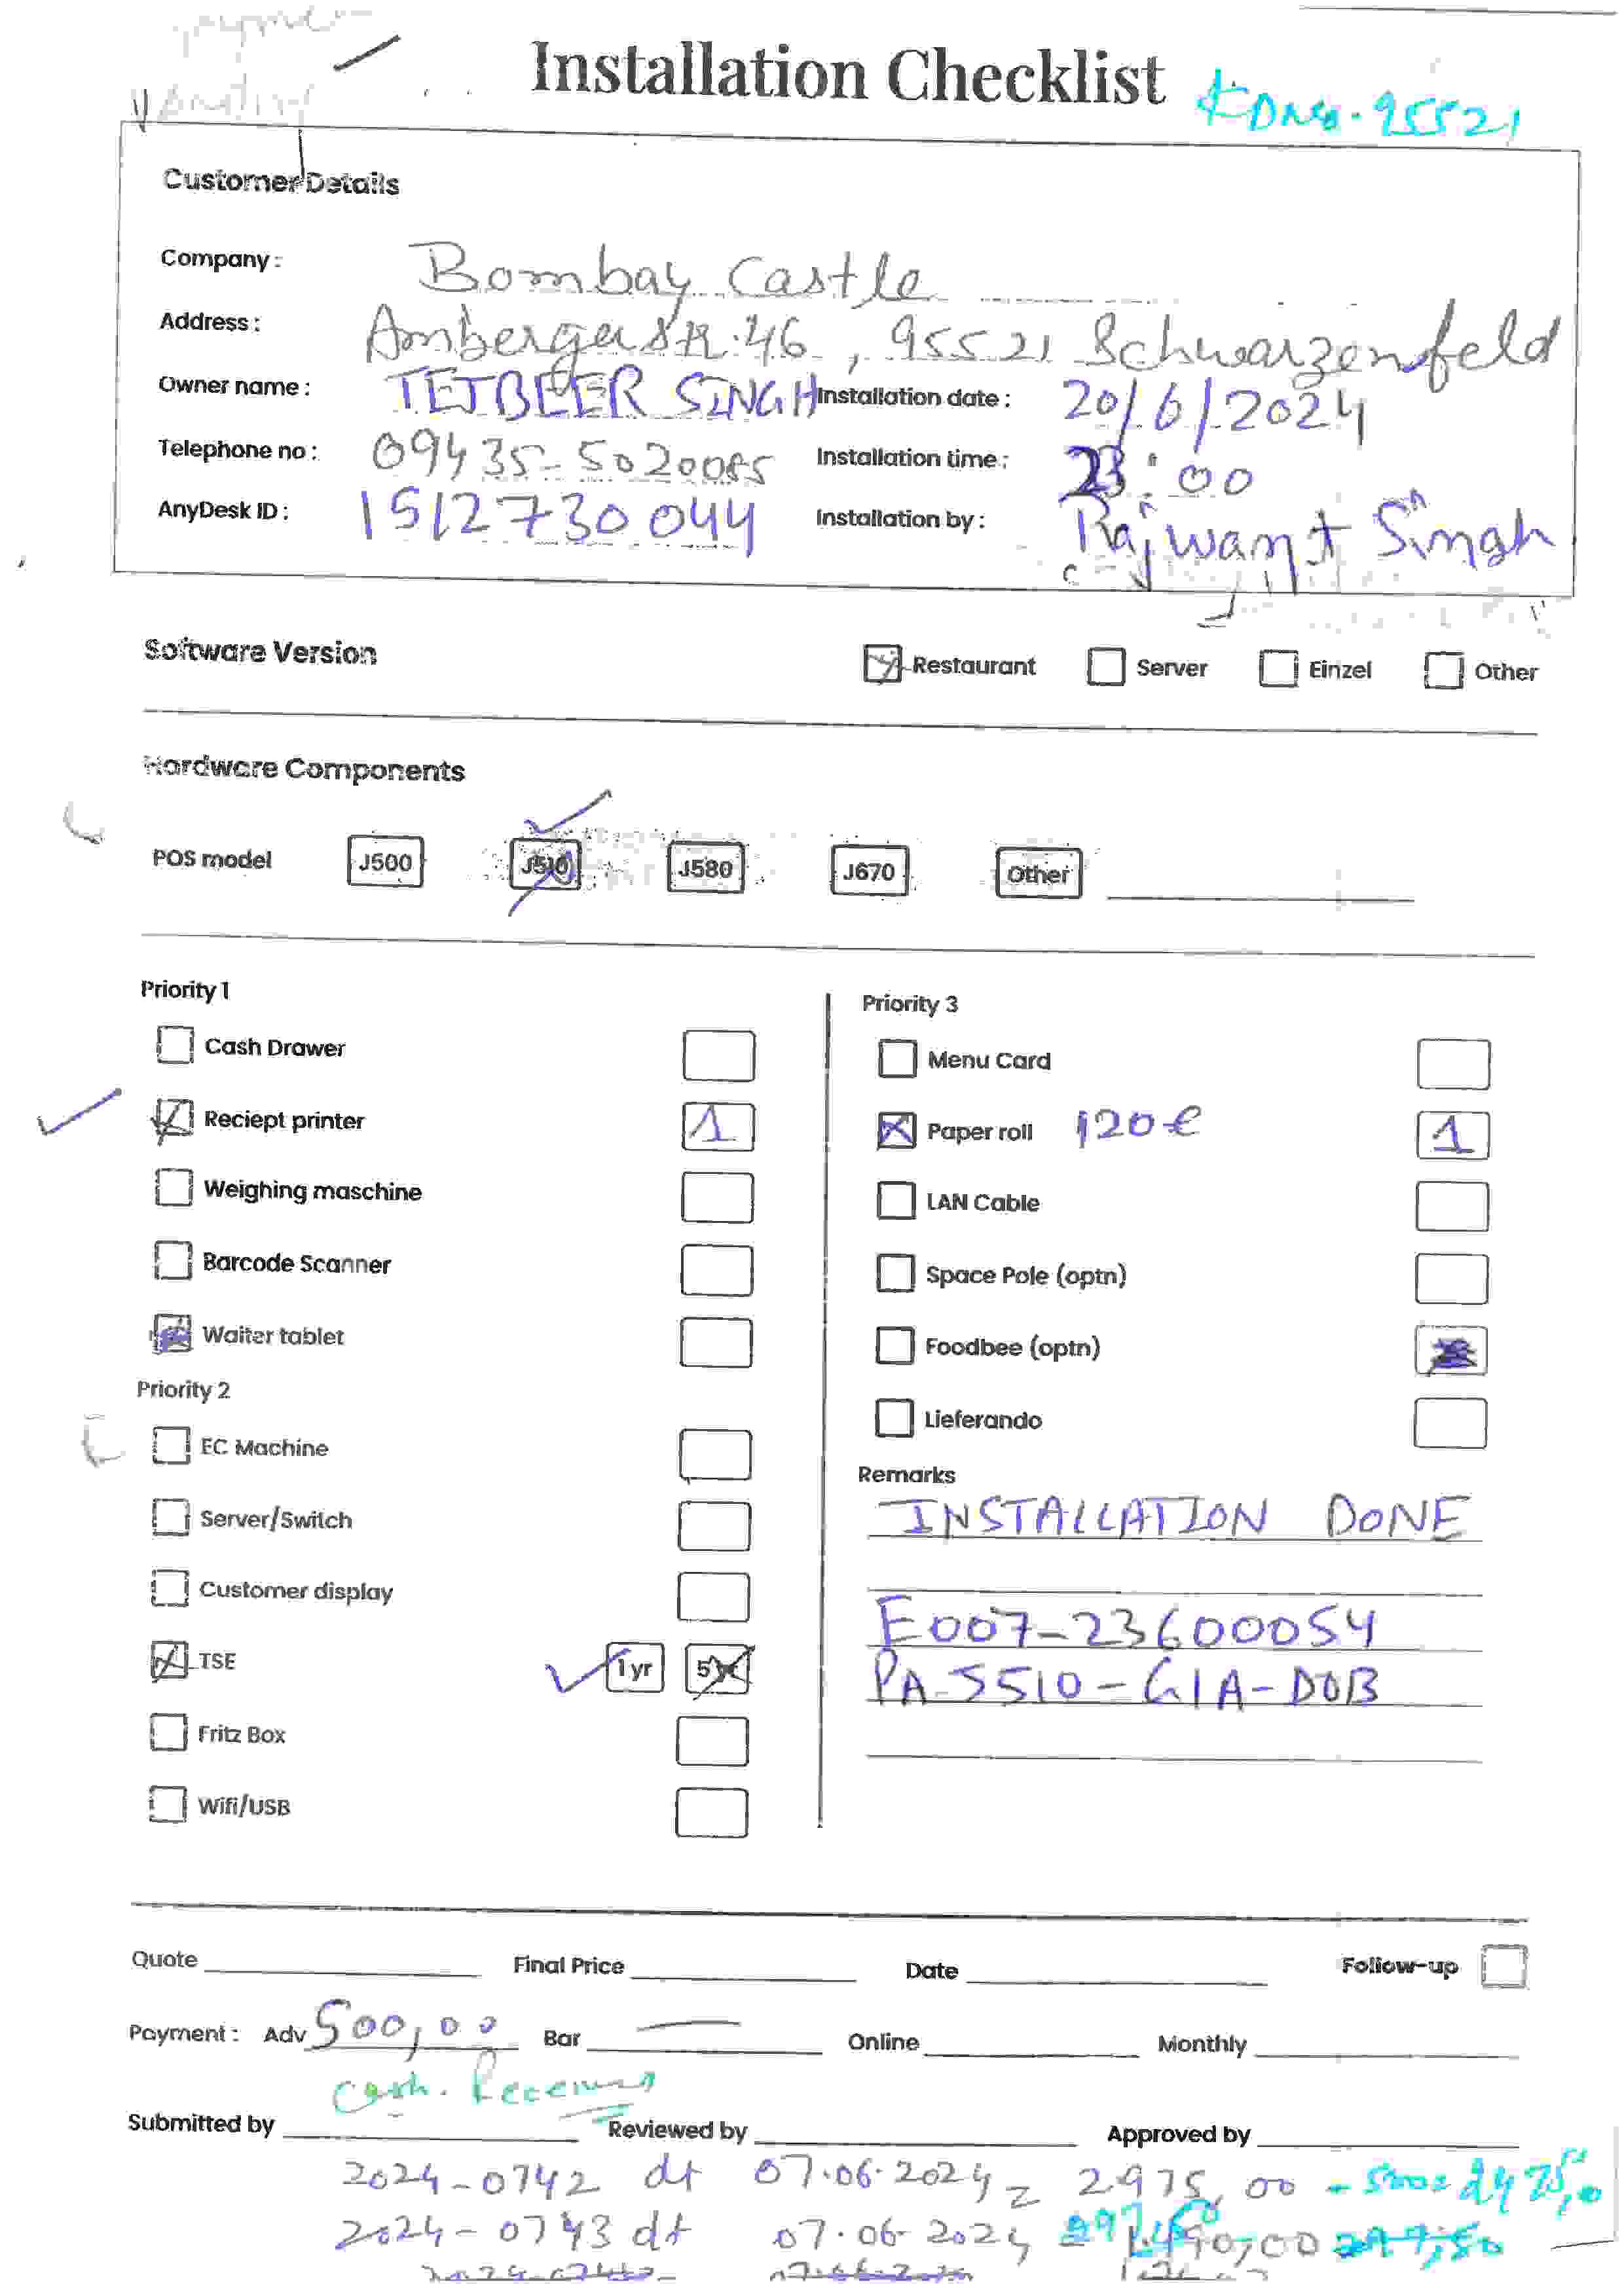 Installation Checklist
KDNo. 95521
Customer Details
Company : Bombay Castle
Address : Ambergerstr. 46, 95521 Schwarzenfeld
Owner name : TEJBEER SINGH Installation date : 20/6/2024
Telephone no : 09435-5020085 Installation time : 23:00
AnyDesk ID : 1512730044 Installation by : Rajwant Singh
Software Version Restaurant Server Einzel Other
Hardware Components
POS model J500 J510 J580 J670 Other
Priority 1
Cash Drawer
Reciept printer 1
Weighing maschine
Barcode Scanner
Waiter tablet
Priority 2
EC Machine
Server/Switch
Customer display
TSE 1 yr
Fritz Box
Wifi/USB
Priority 3
Menu Card
Paper roll 120€ 1
LAN Cable
Space Pole (optn)
Foodbee (optn)
Lieferando
Remarks
INSTALLATION DONE
E007-23600054
PA-5510-G1A-D0B
Quote Final Price Date Follow-up
Payment : Adv 500,00 Bar Online Monthly
Cash. Received
Submitted by Reviewed by Approved by
2024-0742 dt 07.06.2024 = 2975,00
2024-0743 dt 07.06.2024